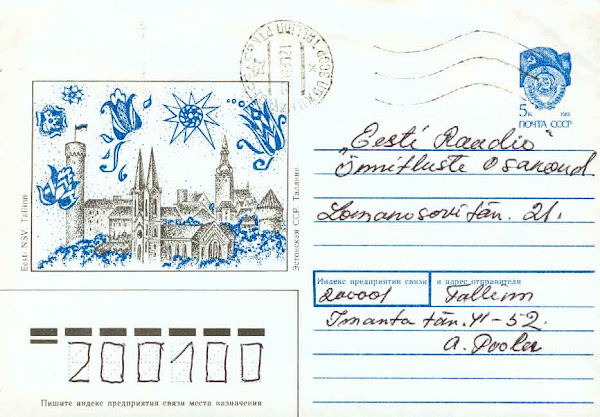 5к 1988
ПОЧТА СССР
„Eesti Raadio“
Õnnitluste osakond
Lomonosovi tän. 21.
Eesti NSV. Tallinn
Эстонская ССР. Таллин
Индекс предприятия связи и адрес отправителя
200001 Tallinn
Imanta tän. 41-52.
A. Pooler
200100
Пишите индекс предприятия связи места назначения